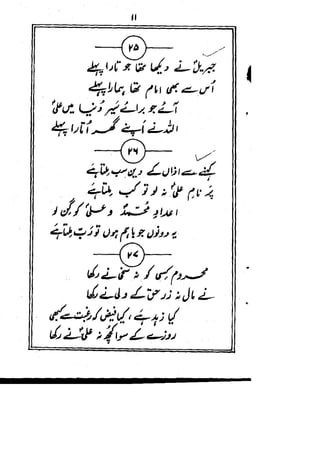 ۱۱
۲۵
جبریلؑ نے دیکھا تھا جو تارا پہلے
اُس سے بھی امام تھا ہمارا پہلے
آئے جو برائے سیرِ دنیا میں علیؑ
اللہ نے اپنے گھر اُتارا پہلے
۲۶
کہنے سے اذاں کے دین سب ملتا ہے
پر نامِ علیؑ نہ لو تو کب ملتا ہے
اعدادِ محمدؐ و علیؑ کو گن لو
یہ دونوں جو باہم ہوں تو رب ملتا ہے
۲۷
محروم کسی کو نہ سخی نے رکھا
نے مال نہ زر حق کے ولی نے رکھا
کیا زہد ہے، کیا فیض کہ رغبت سے کبھی
روزے کے سوا کچھ نہ علیؑ نے رکھا